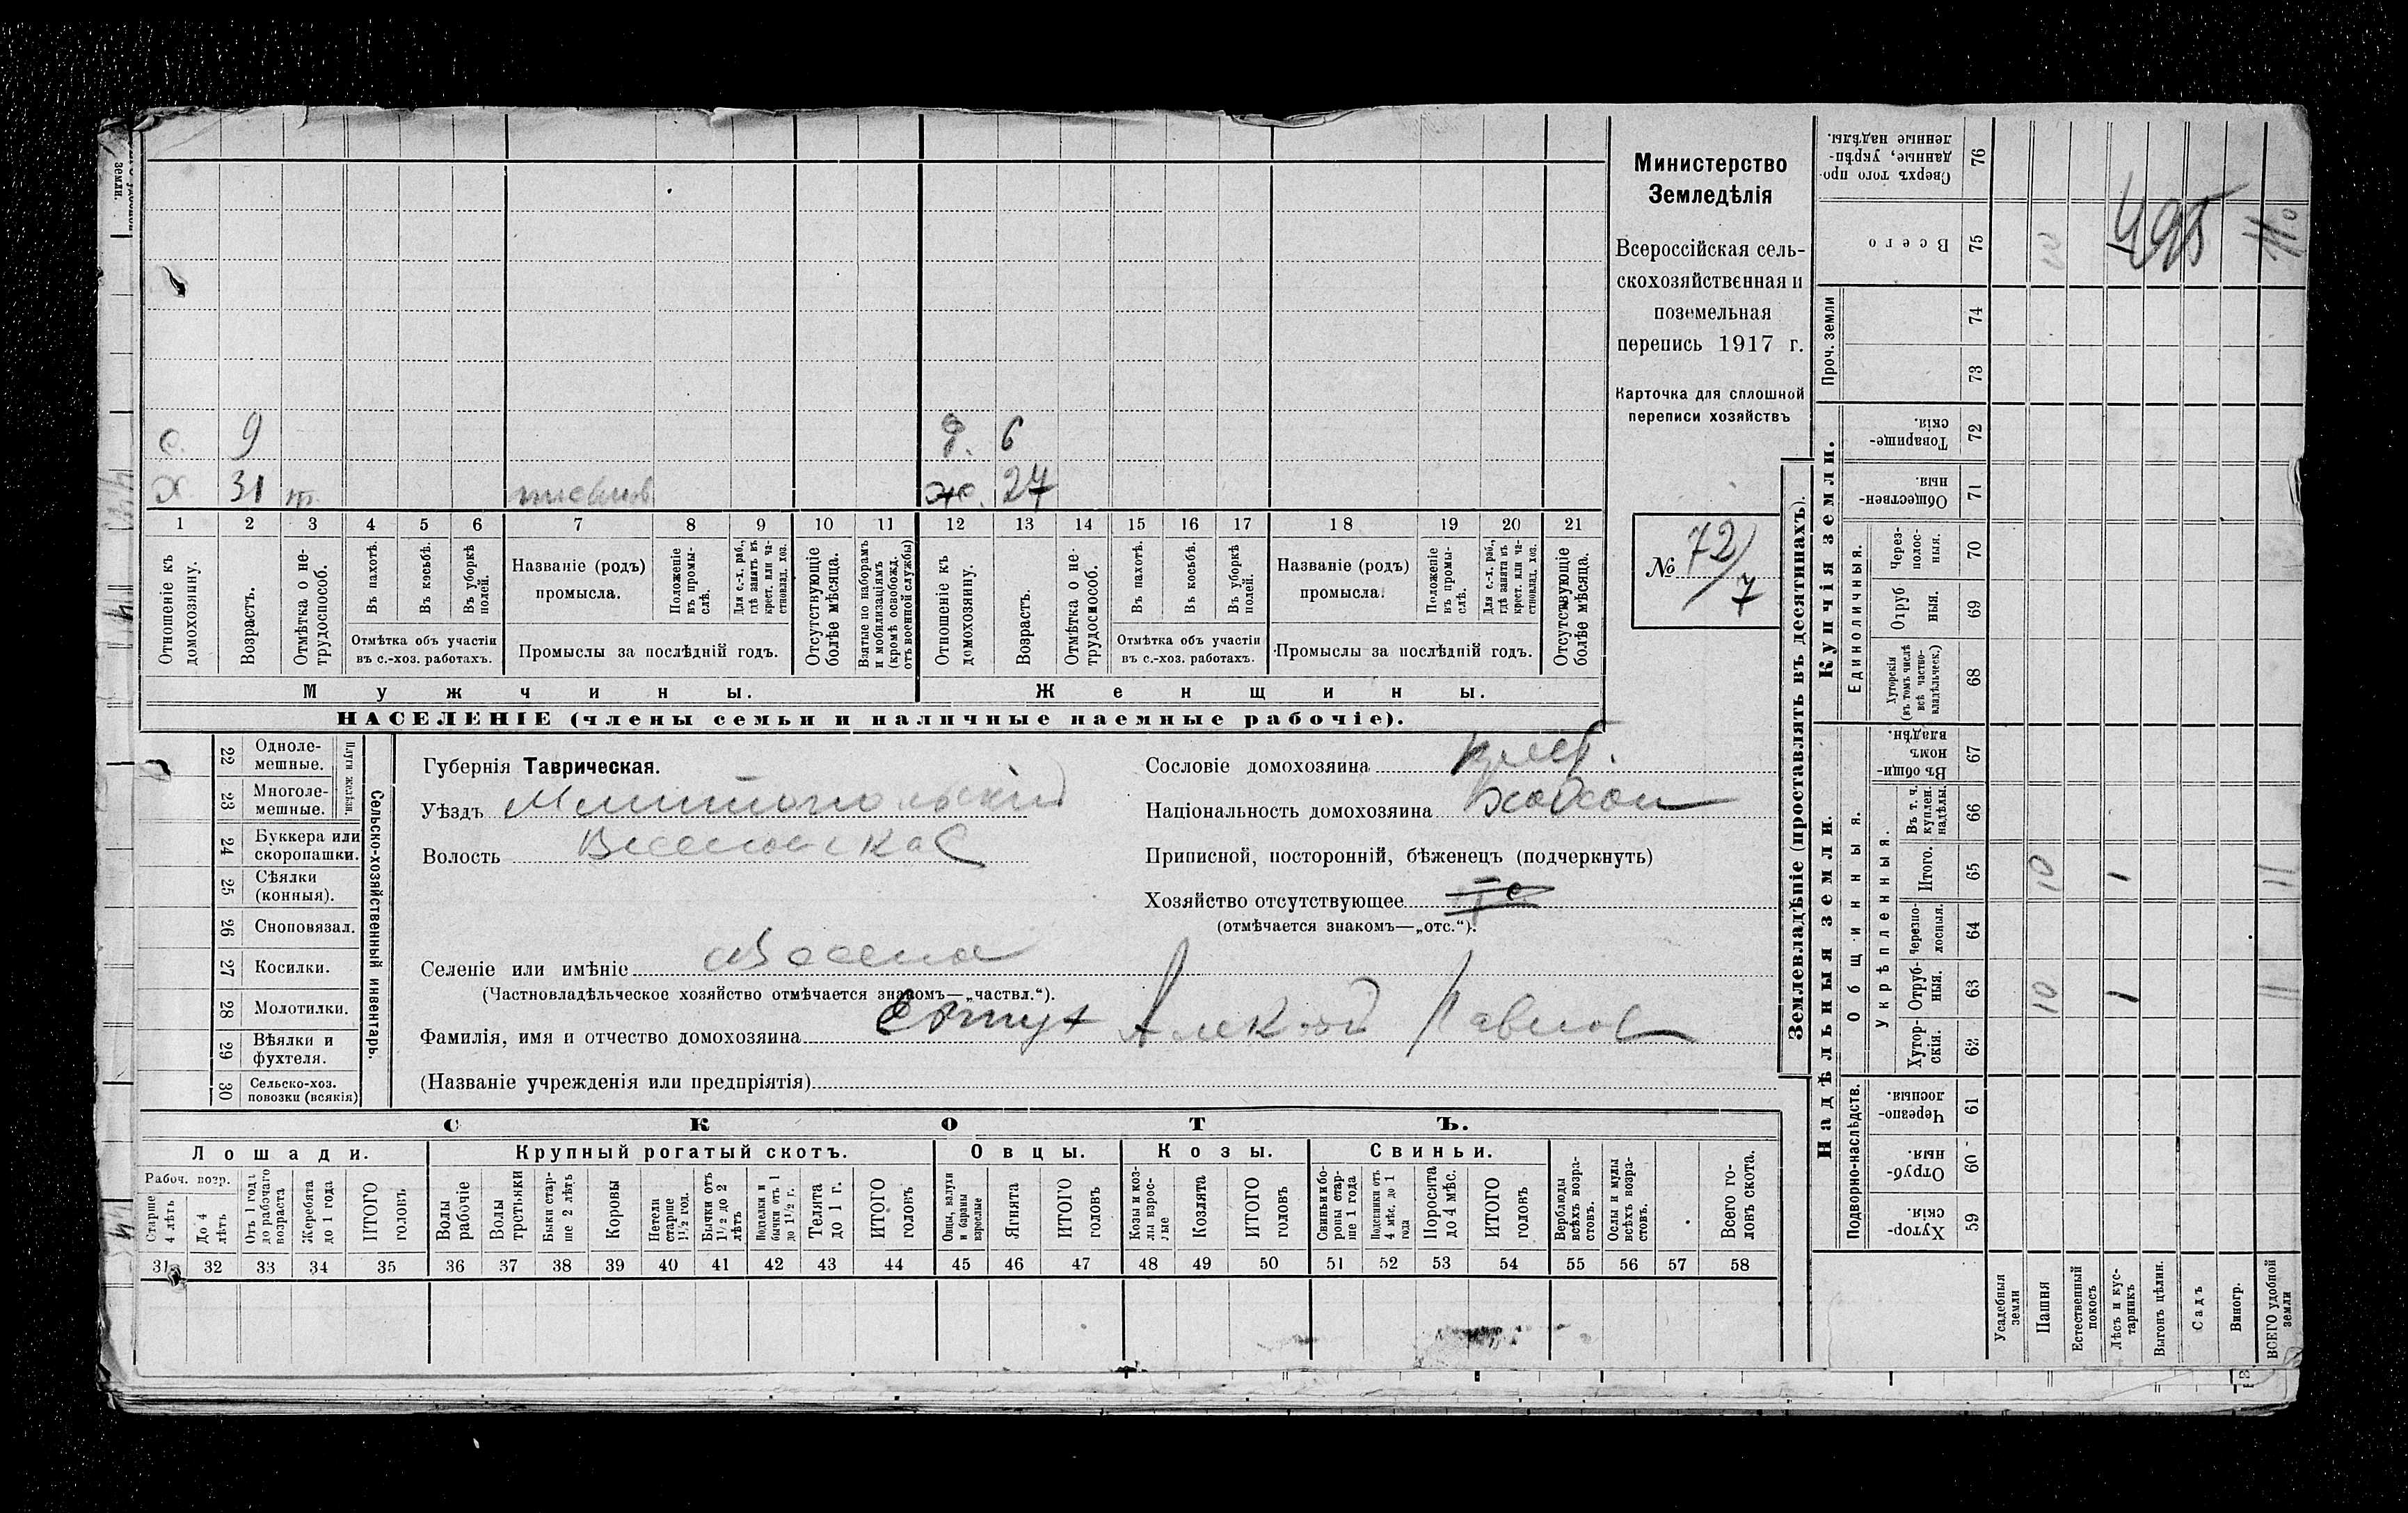 с. 9 д. 6
х 31 ж. 27
1 2 3 4 5 6 7 8 9 10 11 12 13 14 15 16 17 18 19 20 21
Отношеніе къ домохозяину.
Возрастъ.
Отмѣтка о нетрудоспособ.
Въ пахотѣ.
Въ косьбѣ.
Въ уборкѣ полей.
Отмѣтка объ участіи
въ с.-хоз. работахъ.
Названіе (родъ)
промысла.
Положеніе въ промыслѣ.
Для с.-х. раб., гдѣ занятъ въ крест. или частновлад. хоз.
Промыслы за послѣдній годъ.
Отсутствующіе болѣе мѣсяца.
Взятые по наборамъ и мобилизаціямъ (кромѣ освобожд. отъ военной службы)
Отношеніе къ домохозяину.
Возрастъ.
Отмѣтка о нетрудоспособ.
Въ пахотѣ.
Въ косьбѣ.
Въ уборкѣ полей.
Отмѣтка объ участіи
въ с.-хоз. работахъ.
Названіе (родъ)
промысла.
Положеніе въ промыслѣ.
Для с.-х. раб., гдѣ занята въ крест. или частновлад. хоз.
Промыслы за послѣдній годъ.
Отсутствующіе болѣе мѣсяца.
Мужчины.
Женщины.
НАСЕЛЕНІЕ (члены семьи и наличные наемные рабочіе).
Министерство
Земледѣлія
Всероссійская сель-
скохозяйственная и
поземельная
перепись 1917 г.
Карточка для сплошной
переписи хозяйствъ
№ 72/7
22 Одноле-
мешные.
23 Многоле-
мешные.
Плуги желѣзн.
24 Буккера или
скоропашки.
25 Сѣялки
(конныя).
26 Сноповязал.
27 Косилки.
28 Молотилки.
29 Вѣялки и
фухтеля.
30 Сельско-хоз.
повозки (всякія)
Сельско-хозяйственный инвентарь.
Губернія Таврическая.
Уѣздъ Мелитопольскій
Волость Веселовская
Селеніе или имѣніе
(Частновладѣльческое хозяйство отмѣчается знакомъ—„частвл.“).
Фамилія, имя и отчество домохозяина Алексѣй Павлов
(Названіе учрежденія или предпріятія)
Сословіе домохозяина крест.
Національность домохозяина Хохол
Приписной, посторонній, бѣженецъ (подчеркнуть)
Хозяйство отсутствующее
(отмѣчается знакомъ—„отс.“).
СКОТЪ.
Лошади. Крупный рогатый скотъ. Овцы. Козы. Свиньи.
Рабоч. возр.
Старше 4 лѣтъ
До 4 лѣтъ
Отъ 1 года до рабочаго возраста
Жеребята до 1 года
ИТОГО головъ
Волы рабочіе
Волы третьяки
Быки старше 2 лѣтъ
Коровы
Нетели старше 1½ год.
Бычки отъ 1½ до 2 лѣтъ
Подтелки и бычки отъ 1 до 1½ г.
Телята до 1 г.
ИТОГО головъ
Овцы, валухи и бараны взрослые
Ягнята
ИТОГО головъ
Козы и козлы взрослые
Козлята
ИТОГО головъ
Свиньи и боровы старше 1 года
Подсвинки отъ 4 мѣс. до 1 года
Поросята до 4 мѣс.
ИТОГО головъ
Верблюды всѣхъ возрастовъ.
Ослы и мулы всѣхъ возрастовъ.
Всего головъ скота.
31 32 33 34 35 36 37 38 39 40 41 42 43 44 45 46 47 48 49 50 51 52 53 54 55 56 57 58
Землевладѣніе (проставлять въ десятинахъ).
Надѣльныя земли.
Купчія земли.
Проч. земли
Подворно-наслѣдств.
Общинныя.
Укрѣпленныя.
Единоличныя.
Сверхъ того проданные, укрѣпленные надѣлы. 76
Всего 75 10 11
495
74
73
Товарищескія. 72
Общественныя. 71
Черезполосныя. 70
Отрубныя. 69
Хуторскія (въ томъ числѣ всѣ частновладѣльческ.) 68
Въ общинномъ владѣн. 67
Въ т. ч. куплен. надѣлы. 66
Итого. 65 10 1 11
Черезполосныя. 64
Отрубныя. 63 10 1 11
Хуторскія. 62
Черезполосныя. 61
Отрубныя. 60
Хуторскія. 59
Усадебныя земли
Пашня
Естественный покосъ
Лѣсъ и кустарникъ
Выгонъ цѣлин.
Садъ
Виногр.
ВСЕГО удобной земли